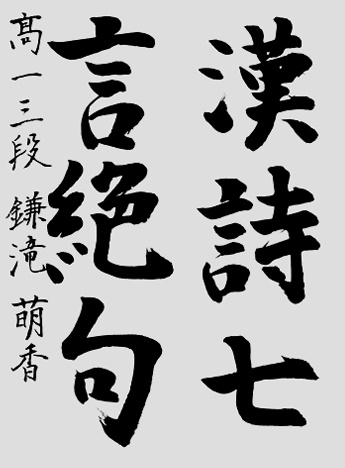 漢詩七
言絶句
高一三段 鎌滝 萌香